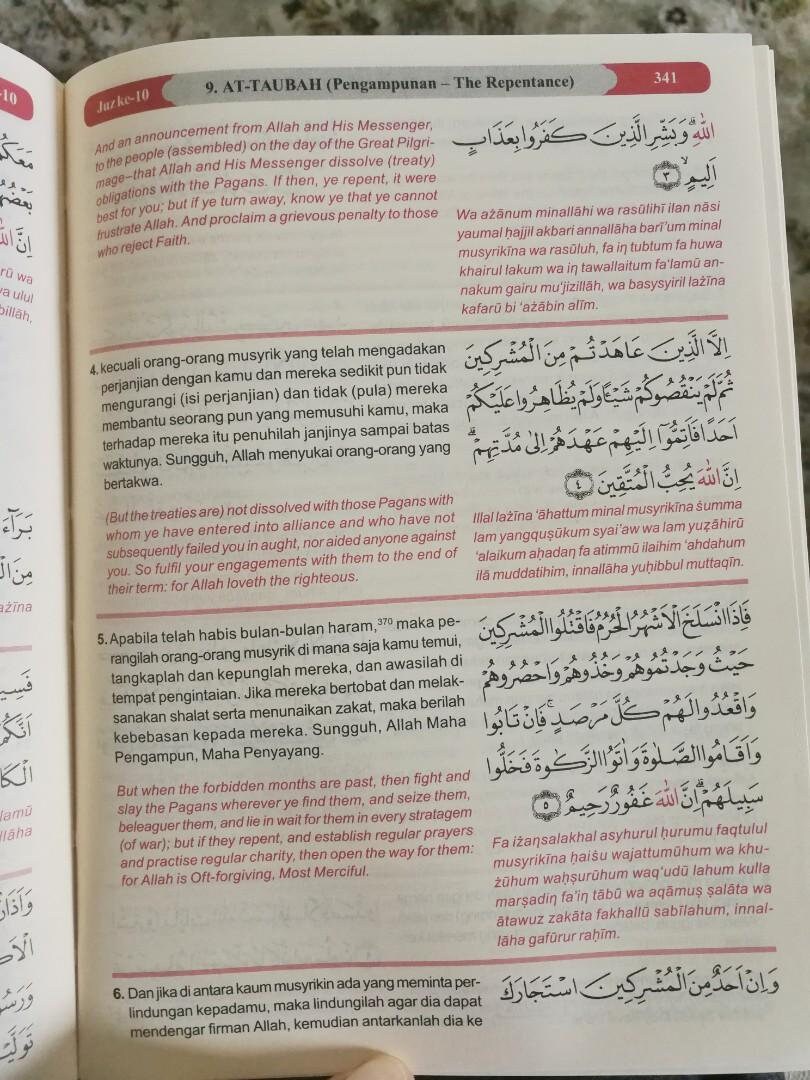 -10
Juz ke-10
9. AT-TAUBAH (Pengampunan – The Repentance)
341
And an announcement from Allah and His Messenger,
to the people (assembled) on the day of the Great Pilgri-
mage–that Allah and His Messenger dissolve (treaty)
obligations with the Pagans. If then, ye repent, it were
best for you; but if ye turn away, know ye that ye cannot
frustrate Allah. And proclaim a grievous penalty to those
who reject Faith.
اللّٰهِ ۗوَبَشِّرِ الَّذِيْنَ كَفَرُوْا بِعَذَابٍ
اَلِيْمٍۙ ٣
Wa ażānum minallāhi wa rasūlihī ilan nāsi
yaumal ḥajjil akbari annallāha barī'um minal
musyrikīna wa rasūluh, fa iņ tubtum fa huwa
khairul lakum wa iņ tawallaitum fa'lamū an-
nakum gairu mu'jizillāh, wa basysyiril lażīna
kafarū bi 'ażābin alīm.
4. kecuali orang-orang musyrik yang telah mengadakan
perjanjian dengan kamu dan mereka sedikit pun tidak
mengurangi (isi perjanjian) dan tidak (pula) mereka
membantu seorang pun yang memusuhi kamu, maka
terhadap mereka itu penuhilah janjinya sampai batas
waktunya. Sungguh, Allah menyukai orang-orang yang
bertakwa.
(But the treaties are) not dissolved with those Pagans with
whom ye have entered into alliance and who have not
subsequently failed you in aught, nor aided anyone against
you. So fulfil your engagements with them to the end of
their term: for Allah loveth the righteous.
اِلَّا الَّذِيْنَ عَاهَدْتُّمْ مِّنَ الْمُشْرِكِيْنَ
ثُمَّ لَمْ يَنْقُصُوْكُمْ شَيْـًٔا وَّلَمْ يُظَاهِرُوْا عَلَيْكُمْ
اَحَدًا فَاَتِمُّوْٓا اِلَيْهِمْ عَهْدَهُمْ اِلٰى مُدَّتِهِمْۗ
اِنَّ اللّٰهَ يُحِبُّ الْمُتَّقِيْنَ ٤
Illal lażīna 'āhattum minal musyrikīna ṡumma
lam yangquṣūkum syai'aw wa lam yuẓāhirū
'alaikum aḥadaņ fa atimmū ilaihim 'ahdahum
ilā muddatihim, innallāha yuḥibbul muttaqīn.
5. Apabila telah habis bulan-bulan haram,³⁷⁰ maka pe-
rangilah orang-orang musyrik di mana saja kamu temui,
tangkaplah dan kepunglah mereka, dan awasilah di
tempat pengintaian. Jika mereka bertobat dan melak-
sanakan shalat serta menunaikan zakat, maka berilah
kebebasan kepada mereka. Sungguh, Allah Maha
Pengampun, Maha Penyayang.
But when the forbidden months are past, then fight and
slay the Pagans wherever ye find them, and seize them,
beleaguer them, and lie in wait for them in every stratagem
(of war); but if they repent, and establish regular prayers
and practise regular charity, then open the way for them:
for Allah is Oft-forgiving, Most Merciful.
فَاِذَا انْسَلَخَ الْاَشْهُرُ الْحُرُمُ فَاقْتُلُوا الْمُشْرِكِيْنَ
حَيْثُ وَجَدْتُّمُوْهُمْ وَخُذُوْهُمْ وَاحْصُرُوْهُمْ
وَاقْعُدُوْا لَهُمْ كُلَّ مَرْصَدٍۚ فَاِنْ تَابُوْا
وَاَقَامُوا الصَّلٰوةَ وَاٰتَوُا الزَّكٰوةَ فَخَلُّوْا
سَبِيْلَهُمْۗ اِنَّ اللّٰهَ غَفُوْرٌ رَّحِيْمٌ ٥
Fa iżaņsalakhal asyhurul ḥurumu faqtulul
musyrikīna ḥaiṡu wajattumūhum wa khu-
żūhum waḥṣurūhum waq'udū lahum kulla
marṣadiņ fa'iņ tābū wa aqāmuṣ ṣalāta wa
ātawuz zakāta fakhallū sabīlahum, innal-
lāha gafūrur raḥīm.
6. Dan jika di antara kaum musyrikin ada yang meminta per-
lindungan kepadamu, maka lindungilah agar dia dapat
mendengar firman Allah, kemudian antarkanlah dia ke
وَاِنْ اَحَدٌ مِّنَ الْمُشْرِكِيْنَ اسْتَجَارَكَ